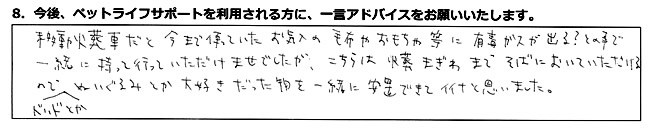 8. 今後、ペットライフサポートを利用される方に、一言アドバイスをお願いいたします。
移動火葬車だと今まで使っていたお気入の毛布やおもちゃ等に有毒ガスが出る?との事で
一緒に持って行っていただけませでしたが、こちらは火葬まぎわまでそばにおいていただける
ので ぬいぐるみとか大好きだった物を一緒に安置できてイイナと思いました。
ベッドとか